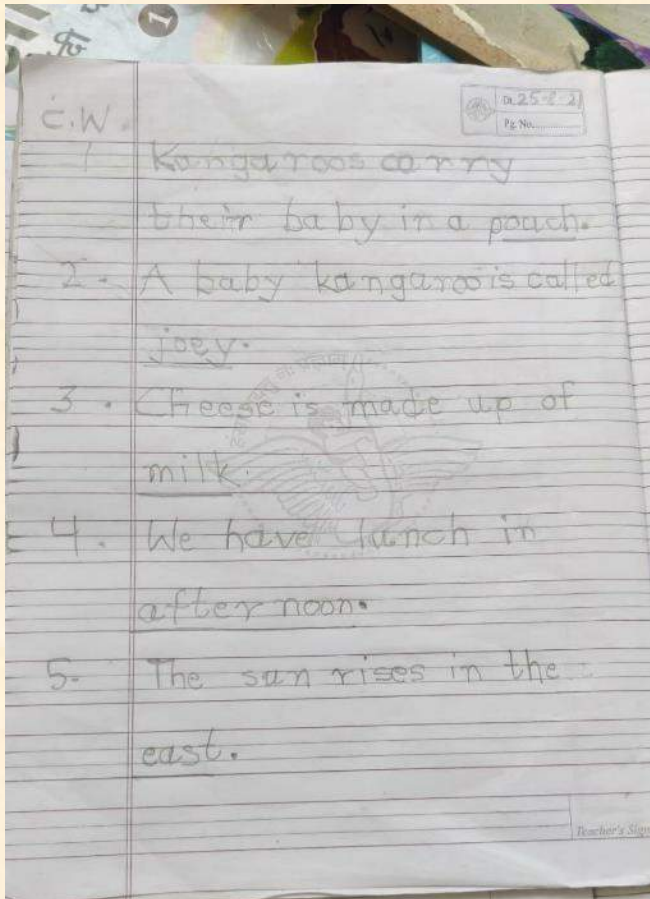 C.W.
Dt. 25-8-21
Pg. No..........
1 Kangaroos carry
their baby in a pouch.
2. A baby kangaroo is called
joey.
3. Cheese is made up of
milk.
4. We have lunch in
after noon.
5. The sun rises in the
east.
Teacher's Sign